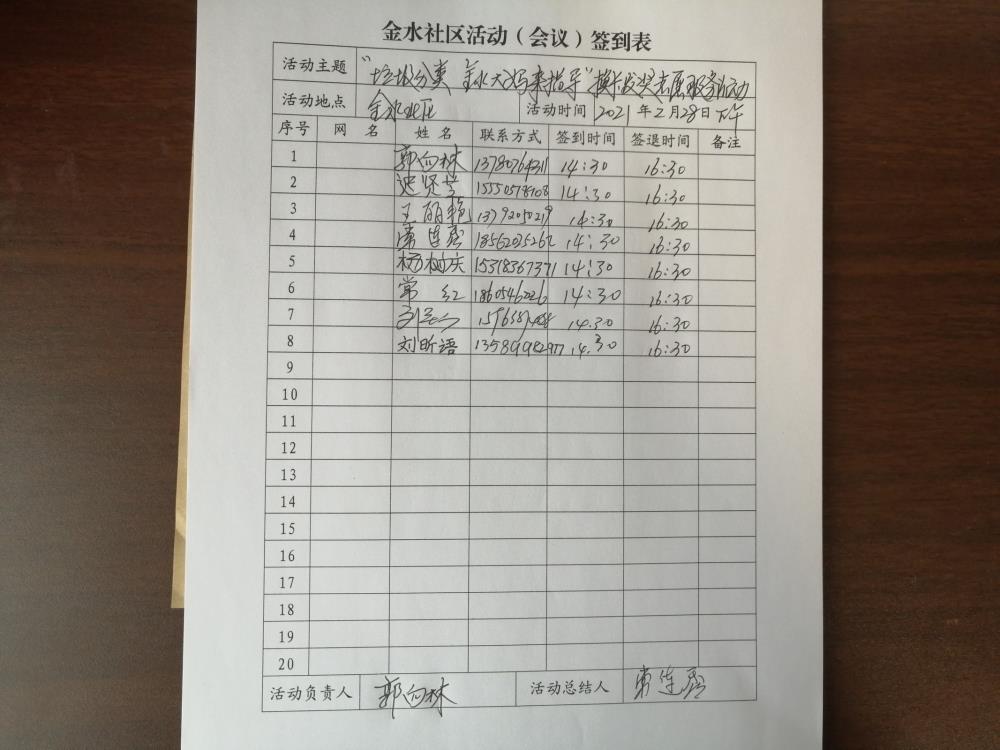 金水社区活动（会议）签到表
活动主题 “垃圾分类 金水大妈来指导”换水发奖志愿服务活动
活动地点 金水社区 活动时间 2021年2月28日下午
序号 网名 姓名 联系方式 签到时间 签退时间 备注
1 郭向林 13780764311 14:30 16:30
2 迟贤兰 15550578108 14:30 16:30
3 王丽艳 14:30 16:30
4 常连香 18562035262 14:30 16:30
5 杨树庆 15318367371 14:30 16:30
6 常红 14:30 16:30
7 14:30 16:30
8 刘昕语 13589982977 14:30 16:30
9
10
11
12
13
14
15
16
17
18
19
20
活动负责人 郭向林 活动总结人 常连香